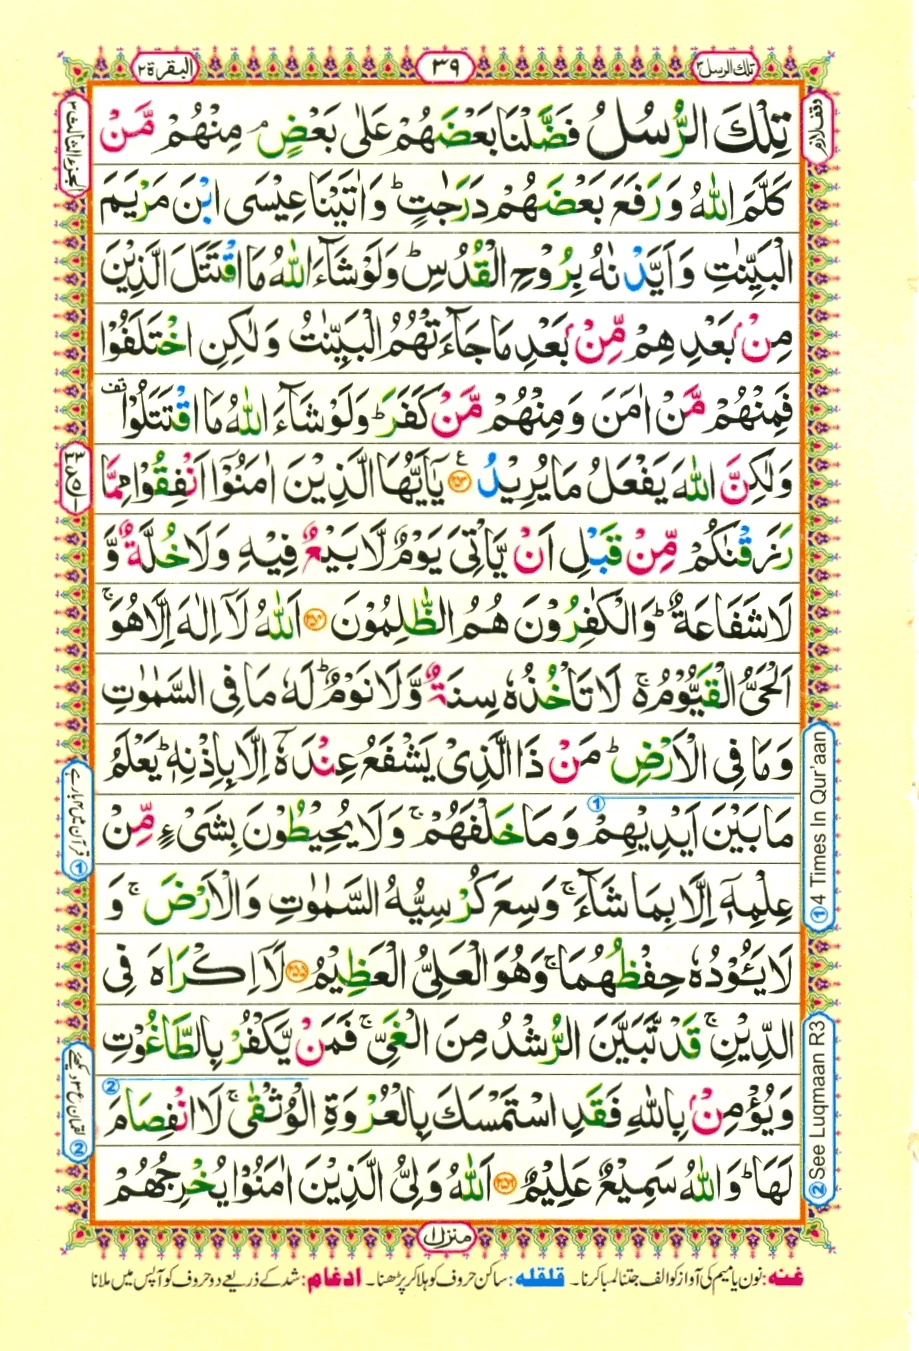 البقرة ٢
٣٩
تلك الرسل ٣
وقف لازم
الجزء الثالث ٣
تِلْكَ الرُّسُلُ فَضَّلْنَا بَعْضَهُمْ عَلٰى بَعْضٍ ۘ مِنْهُمْ مَّنْ
كَلَّمَ اللّٰهُ وَ رَفَعَ بَعْضَهُمْ دَرَجٰتٍ ؕ وَ اٰتَيْنَا عِيْسَى ابْنَ مَرْيَمَ
الْبَيِّنٰتِ وَ اَيَّدْنٰهُ بِرُوْحِ الْقُدُسِ ؕ وَ لَوْ شَآءَ اللّٰهُ مَا اقْتَتَلَ الَّذِيْنَ
مِنْۢ بَعْدِهِمْ مِّنْۢ بَعْدِ مَا جَآءَتْهُمُ الْبَيِّنٰتُ وَ لٰكِنِ اخْتَلَفُوْا
فَمِنْهُمْ مَّنْ اٰمَنَ وَ مِنْهُمْ مَّنْ كَفَرَ ؕ وَ لَوْ شَآءَ اللّٰهُ مَا اقْتَتَلُوْا ۫
وَ لٰكِنَّ اللّٰهَ يَفْعَلُ مَا يُرِيْدُ ﴿۲۵۳﴾ يٰۤاَيُّهَا الَّذِيْنَ اٰمَنُوْۤا اَنْفِقُوْا مِمَّا
رَزَقْنٰكُمْ مِّنْ قَبْلِ اَنْ يَّاْتِيَ يَوْمٌ لَّا بَيْعٌ فِيْهِ وَ لَا خُلَّةٌ وَّ
لَا شَفَاعَةٌ ؕ وَ الْكٰفِرُوْنَ هُمُ الظّٰلِمُوْنَ ﴿۲۵۴﴾ اَللّٰهُ لَاۤ اِلٰهَ اِلَّا هُوَ ۚ
اَلْحَيُّ الْقَيُّوْمُ ۚ۬ لَا تَاْخُذُهٗ سِنَةٌ وَّ لَا نَوْمٌ ؕ لَهٗ مَا فِي السَّمٰوٰتِ
وَ مَا فِي الْاَرْضِ ؕ مَنْ ذَا الَّذِيْ يَشْفَعُ عِنْدَهٗۤ اِلَّا بِاِذْنِهٖ ؕ يَعْلَمُ
مَا بَيْنَ اَيْدِيْهِمْ وَ مَا خَلْفَهُمْ ۚ وَ لَا يُحِيْطُوْنَ بِشَيْءٍ مِّنْ
عِلْمِهٖۤ اِلَّا بِمَا شَآءَ ۚ وَسِعَ كُرْسِيُّهُ السَّمٰوٰتِ وَ الْاَرْضَ ۚ وَ
لَا يَـُٔوْدُهٗ حِفْظُهُمَا ۚ وَ هُوَ الْعَلِيُّ الْعَظِيْمُ ﴿۲۵۵﴾ لَاۤ اِكْرَاهَ فِي
الدِّيْنِ ۚ قَدْ تَّبَيَّنَ الرُّشْدُ مِنَ الْغَيِّ ۚ فَمَنْ يَّكْفُرْ بِالطَّاغُوْتِ
وَ يُؤْمِنْۢ بِاللّٰهِ فَقَدِ اسْتَمْسَكَ بِالْعُرْوَةِ الْوُثْقٰى ۚ لَا انْفِصَامَ
لَهَا ؕ وَ اللّٰهُ سَمِيْعٌ عَلِيْمٌ ﴿۲۵۶﴾ اَللّٰهُ وَلِيُّ الَّذِيْنَ اٰمَنُوْا يُخْرِجُهُمْ
① 4 Times In Qur'aan
② See Luqmaan R3
قرآن میں ۴ بار ہے ①
لقمان رع ۳ دیکھئے ②
منزل ۱
غنہ: نون یا میم کی آواز کو الف جتنا لمبا کرنا۔ قلقلہ: ساکن حروف کو ہلا کر پڑھنا۔ ادغام: شد کے ذریعے دو حروف کو آپس میں ملانا